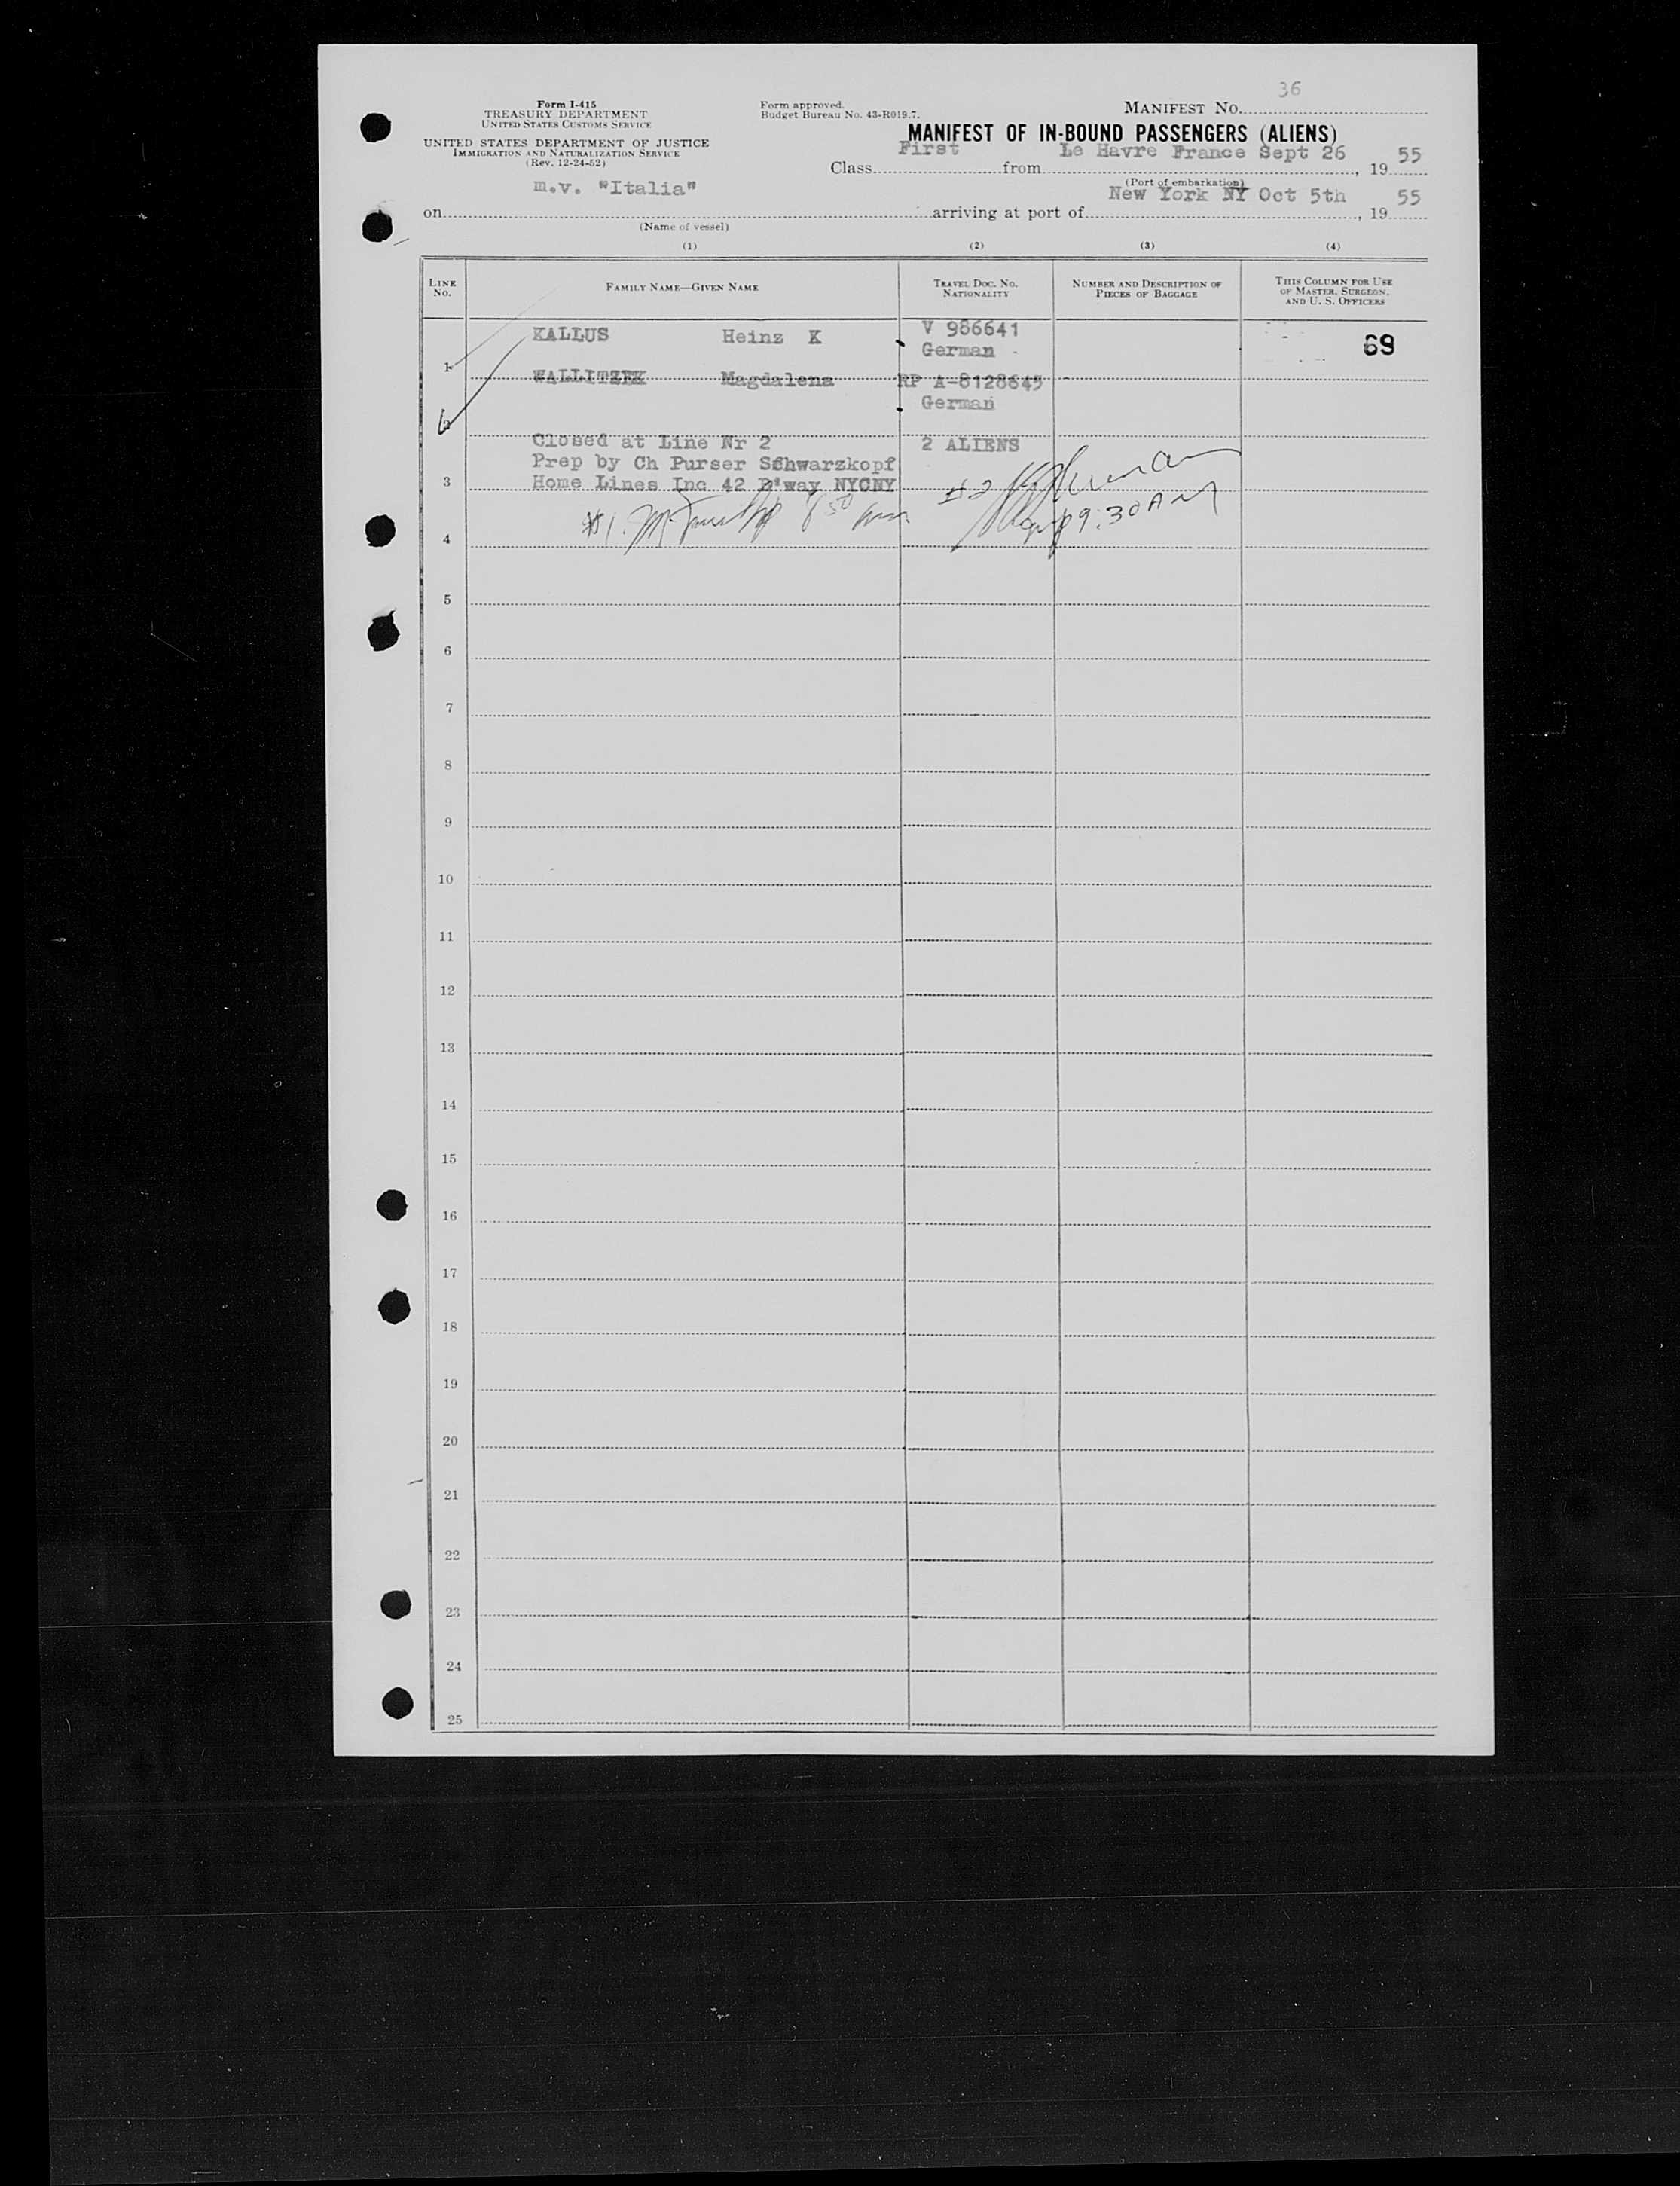 36
Form I-415
TREASURY DEPARTMENT
UNITED STATES CUSTOMS SERVICE
UNITED STATES DEPARTMENT OF JUSTICE
IMMIGRATION AND NATURALIZATION SERVICE
(Rev. 12-24-52)
Form approved.
Budget Bureau No. 43-R019.7.
MANIFEST No.
MANIFEST OF IN-BOUND PASSENGERS (ALIENS)
Class First from Le Havre France Sept 26, 19 55
(Port of embarkation)
on m.v. "Italia" arriving at port of New York NY Oct 5th, 19 55
(Name of vessel)
(1) (2) (3) (4)
LINE No. FAMILY NAME—GIVEN NAME TRAVEL DOC. NO. NATIONALITY NUMBER AND DESCRIPTION OF PIECES OF BAGGAGE THIS COLUMN FOR USE OF MASTER, SURGEON, AND U. S. OFFICERS
KALLUS Heinz K V 986641 69
German
1
WALLITZEK Magdalena RP A-8128645
German
2
Closed at Line Nr 2 2 ALIENS
Prep by Ch Purser Schwarzkopf
3 Home Lines Inc 42 B'way NYCNY
#2
#1. 8 50 am 9:30 AM
4
5
6
7
8
9
10
11
12
13
14
15
16
17
18
19
20
21
22
23
24
25